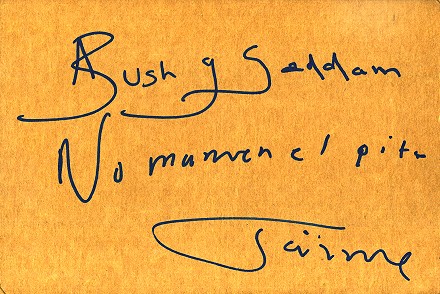 Bush y Saddam
No mamen el pito
Jaime